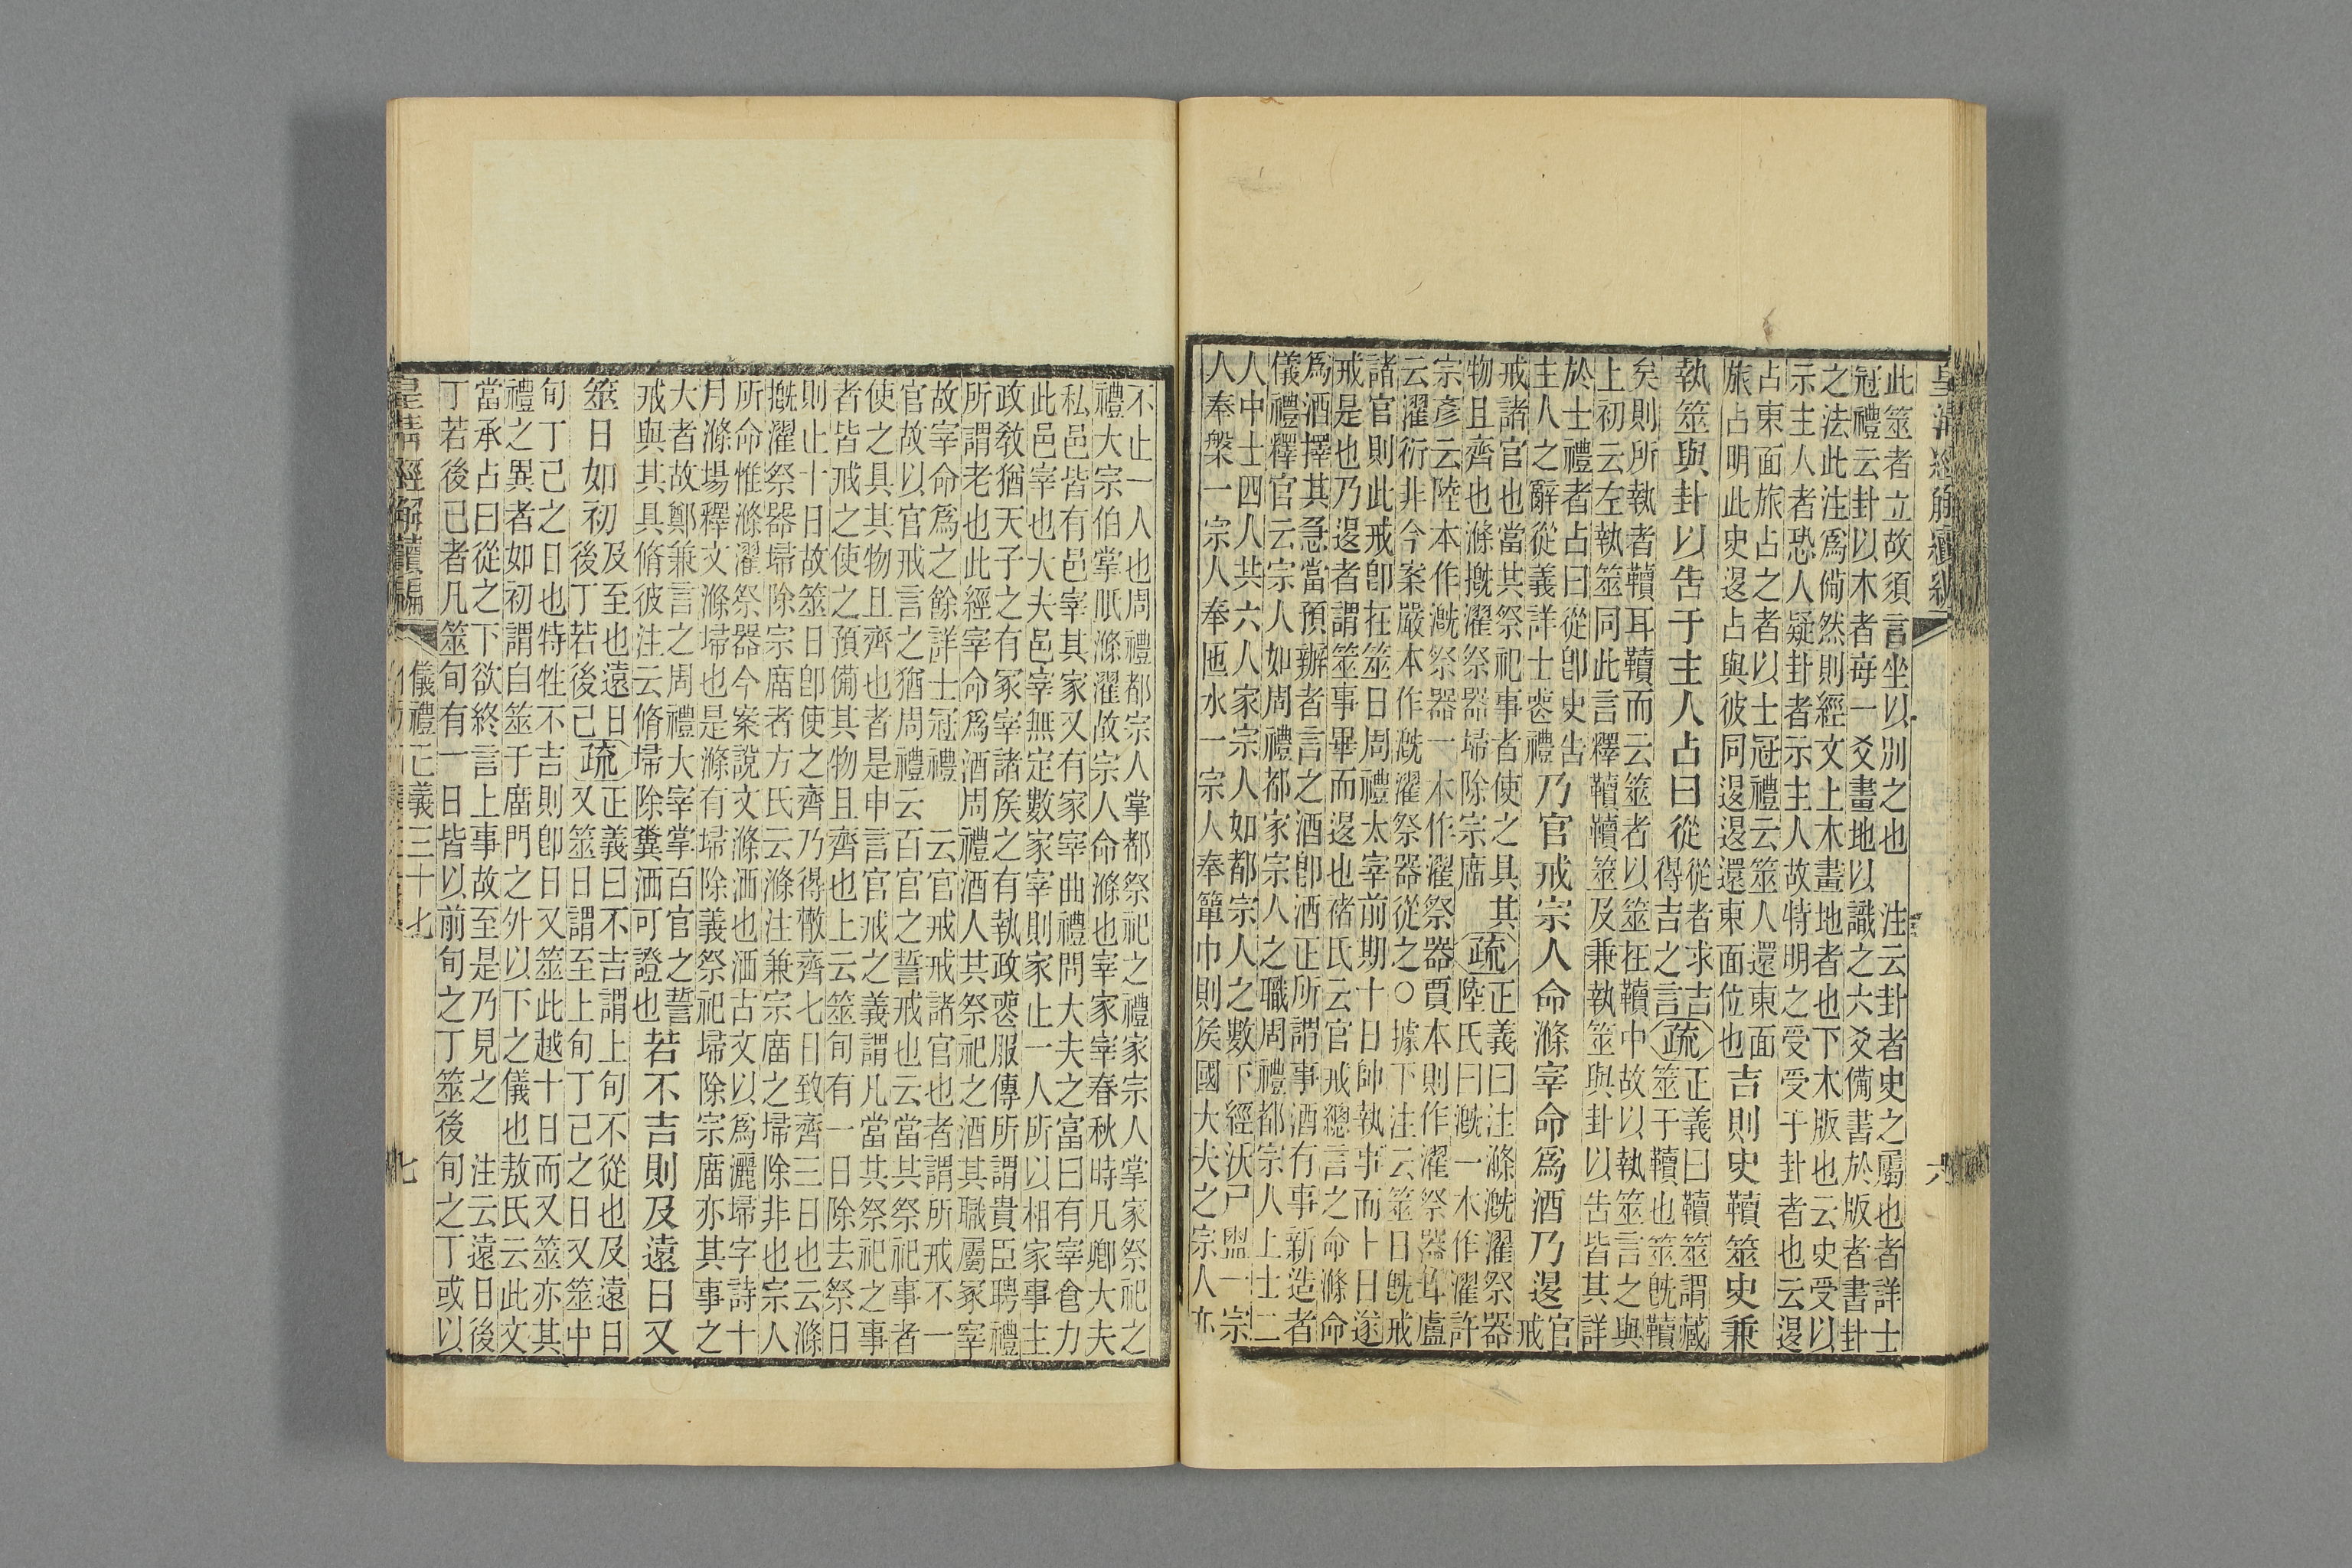 皇清經解續編 六
此筮者立故須言坐以別之也 注云卦者史之屬也者詳士
冠禮云卦以木者每一爻畫地以識之六爻備書於版者書卦
之法此注爲備然則經文上木畫地者也下木版也云史受以
示主人者恐人疑卦者示主人故特明之受受于卦者也云退
占東面旅占之者以士冠禮云筮人還東面
旅占明此史退占與彼同退退還東面位也
吉則史韇筮史兼
執筮與卦以告于主人占曰從
從者求吉
得吉之言
疏
正義曰韇筮謂藏
筮于韇也筮旣韇
矣則所執者韇耳韇而云筮者以筮在韇中故以執筮言之與
上初云左執筮同此言釋韇韇筮及兼執筮與卦以告皆其詳
於士禮者占曰從卽史告
主人之辭從義詳士喪禮
乃官戒宗人命滌宰命爲酒乃退
官
戒
戒諸官也當其祭祀事者使之具其
物且齊也滌摡濯祭器埽除宗廟
疏
正義曰注滌溉濯祭器
陸氏曰溉一本作濯許
宗彥云陸本作溉祭器一本作濯祭器賈本則作濯祭器耳盧
云濯衍非今案嚴本作溉濯祭器從之○據下注云筮日旣戒
諸官則此戒卽在筮日周禮太宰前期十日帥執事而卜日遂
戒是也乃退者謂筮事畢而退也褚氏云官戒總言之命滌命
爲酒擇其急當預辦者言之酒卽酒正所謂事酒有事新造者
儀禮釋官云宗人如周禮都家宗人之職周禮都宗人上士二
人中士四人共六人家宗人如都宗人之數下經沃尸盥一宗
人奉槃一宗人奉匜水一宗人奉簞巾則侯國大夫之宗人亦
不止一人也周禮都宗人掌都祭祀之禮家宗人掌家祭祀之
禮大宗伯掌眡滌濯故宗人命滌也宰家宰春秋時凡卿大夫
私邑皆有邑宰其家又有家宰曲禮問大夫之富曰有宰食力
此邑宰也大夫邑宰無定數家宰則家止一人所以相家事主
政敎猶天子之有冢宰諸侯之有執政喪服傳所謂貴臣聘禮
所謂老也此經宰命爲酒周禮酒人其祭祀之酒其職屬冢宰
故宰命爲之餘詳士冠禮 云官戒戒諸官也者謂所戒不一
官故以官戒言之猶周禮云百官之誓戒也云當共祭祀事者
使之具其物且齊也者是申言官戒之義謂凡當共祭祀之事
者皆戒之使之預備其物且齊也上云筮旬有一日除去祭日
則止十日故筮日卽使之齊乃得散齊七日致齊三日也云滌
摡濯祭器埽除宗廟者方氏云滌注兼宗廟之埽除非也宗人
所命惟滌濯祭器今案說文滌洒也洒古文以爲灑埽字詩十
月滌場釋文滌埽也是滌有埽除義祭祀埽除宗廟亦其事之
大者故鄭兼言之周禮大宰掌百官之誓
戒與其具脩彼注云脩埽除糞洒可證也
若不吉則及遠日又
筮日如初
及至也遠日
後丁若後己
疏
正義曰不吉謂上旬不從也及遠日
又筮日謂至上旬丁己之日又筮中
旬丁己之日也特牲不吉則卽日又筮此越十日而又筮亦其
禮之異者如初謂自筮于廟門之外以下之儀也敖氏云此文
當承占曰從之下欲終言上事故至是乃見之 注云遠日後
丁若後己者凡筮旬有一日皆以前旬之丁筮後旬之丁或以
皇清經解續編 儀禮正義三十七 七